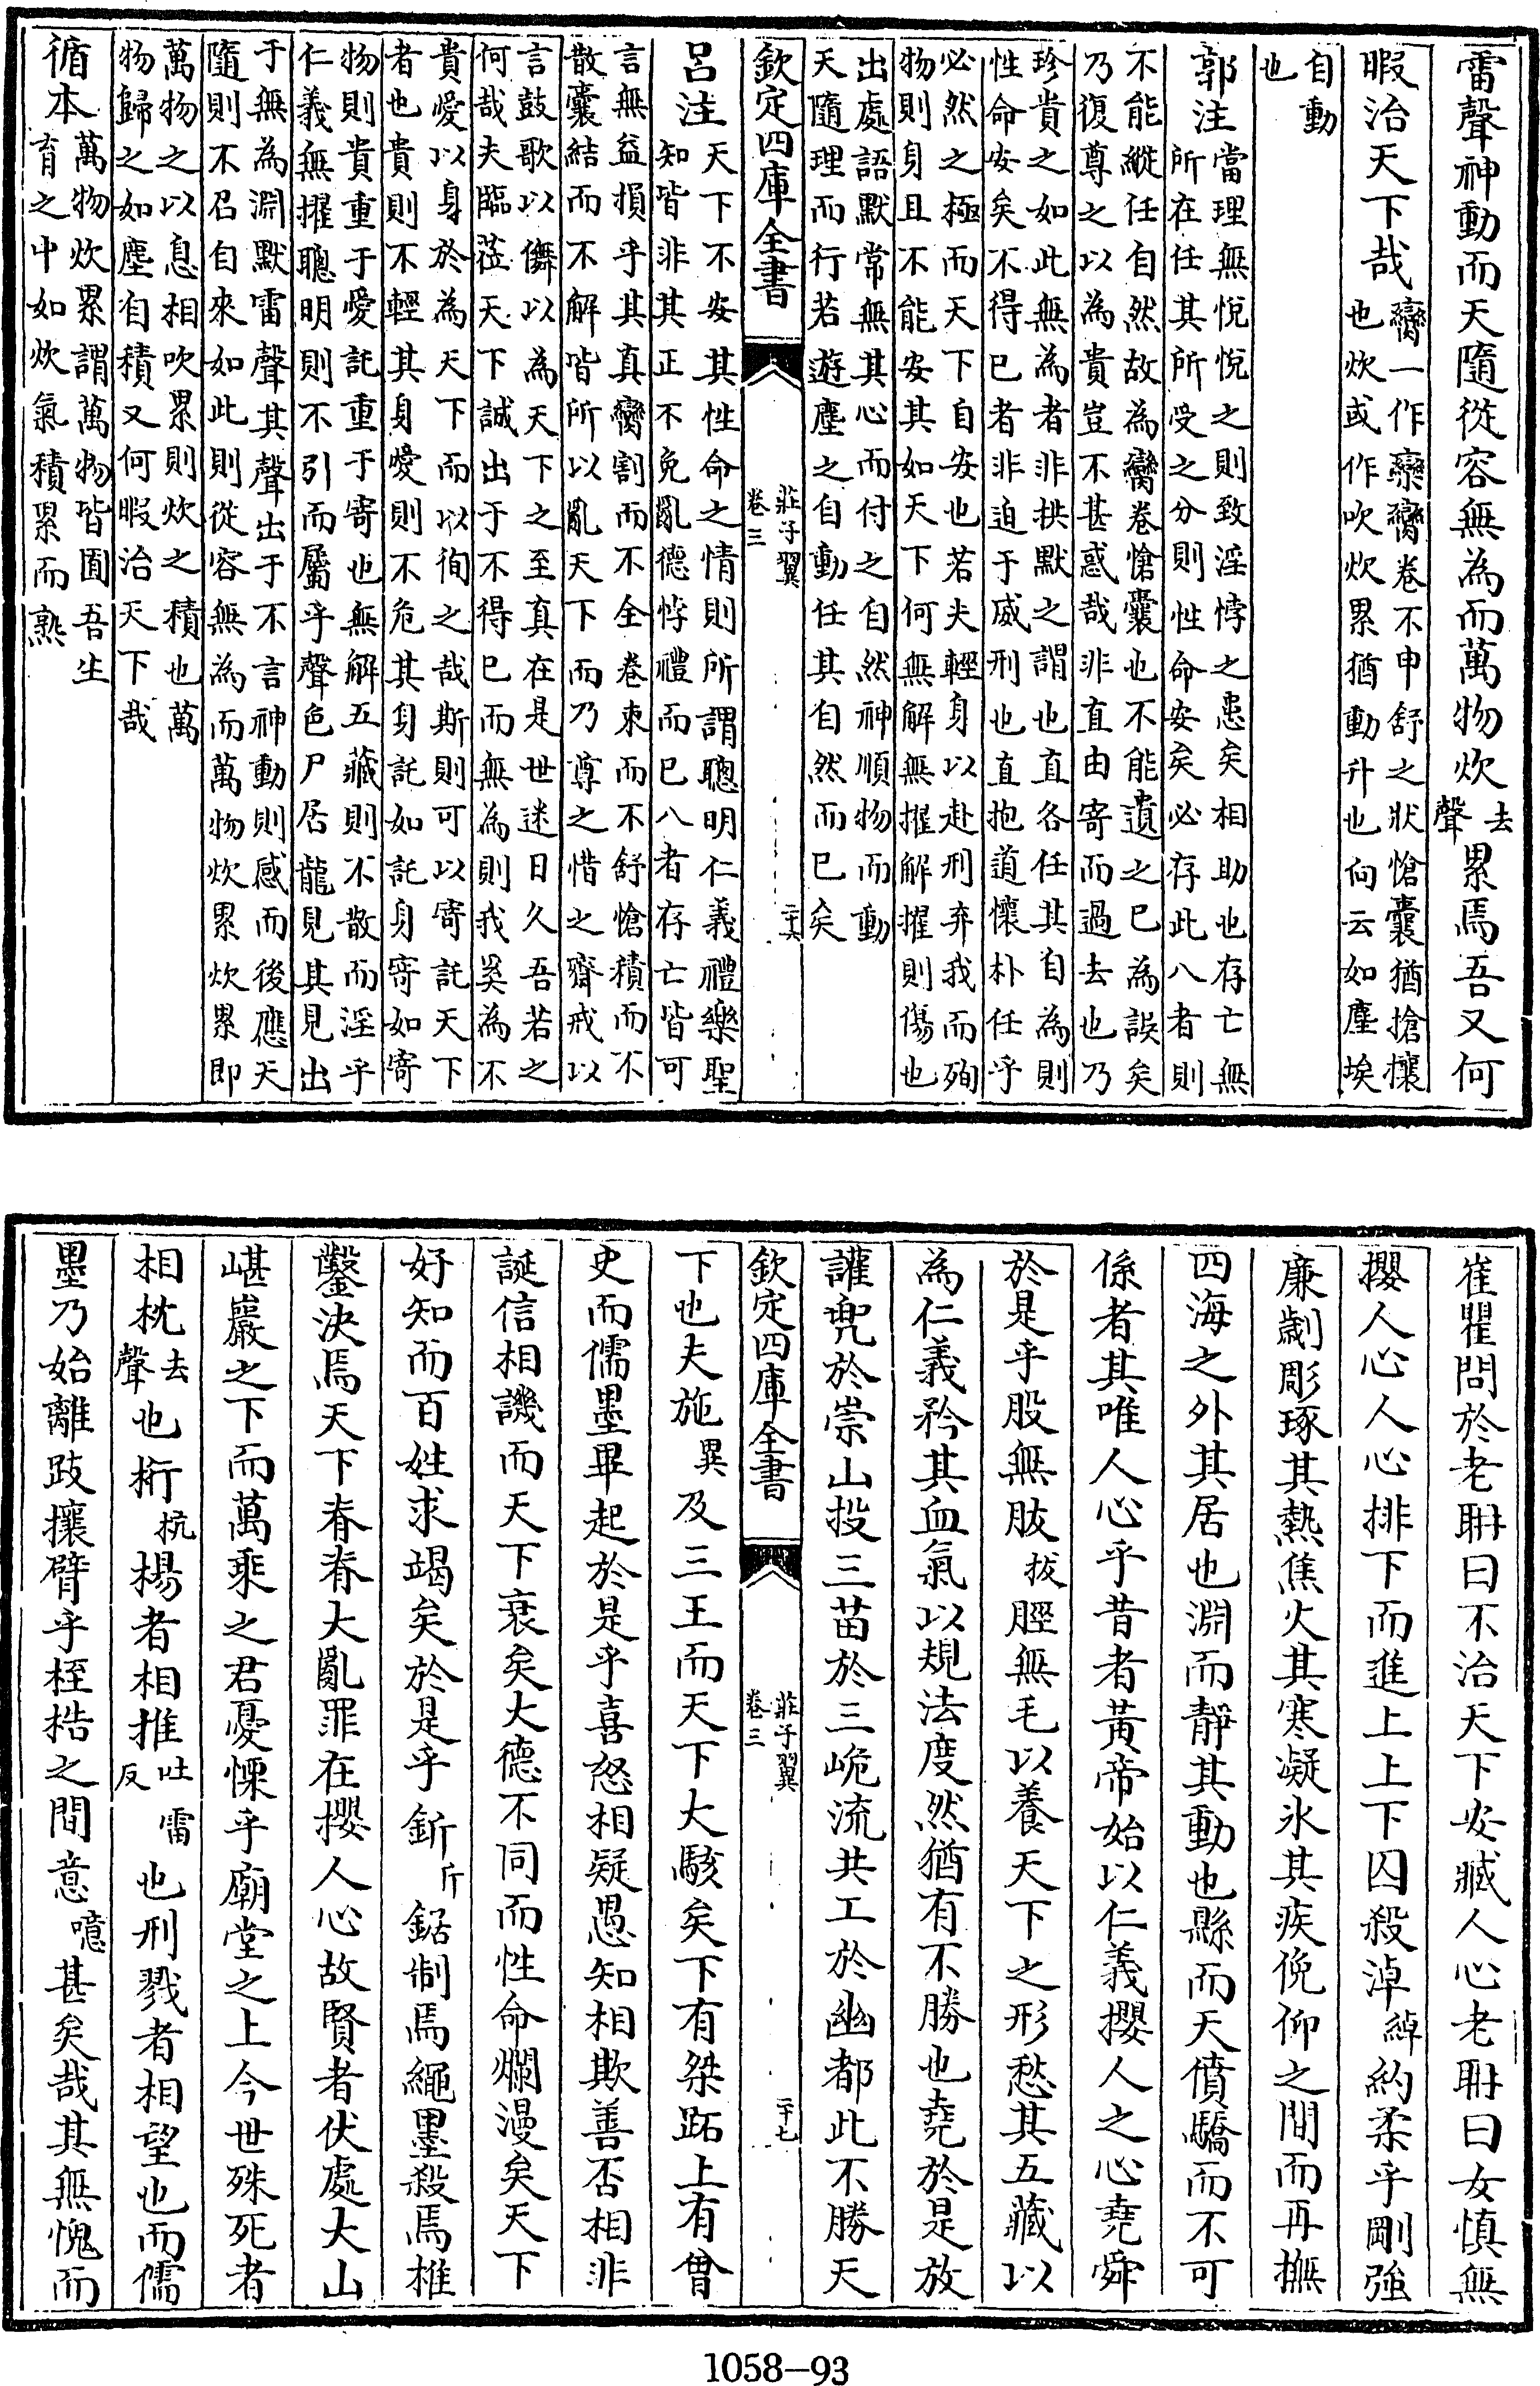 雷聲神動而天隨從容無為而萬物炊去聲累焉吾又何
暇治天下哉臠一作欒臠卷不申舒之狀愴囊猶搶攘
也炊或作吹炊累猶動升也向云如塵埃
自動
也
郭注當理無悅悅之則致淫悖之患矣相助也存亡無
所在任其所受之分則性命安矣必存此八者則
不能縱任自然故為臠卷愴囊也不能遺之已為誤矣
乃復尊之以為貴豈不甚惑哉非直由寄而過去也乃
珍貴之如此無為者非拱默之謂也直各任其自為則
性命安矣不得已者非迫于威刑也直抱道懷朴任乎
必然之極而天下自安也若夫輕身以赴刑弃我而殉
物則身且不能安其如天下何無解無擢解擢則傷也
出處語默常無其心而付之自然神順物而動
天隨理而行若遊塵之自動任其自然而已矣
欽定四庫全書
莊子翼
卷三
二十六
呂注天下不安其性命之情則所謂聰明仁義禮樂聖
知皆非其正不免亂德悖禮而已八者存亡皆可
言無益損乎其真臠割而不全卷束而不舒愴積而不
散囊結而不解皆所以亂天下而乃尊之惜之齊戒以
言鼓歌以儛以為天下之至真在是世迷日久吾若之
何哉夫臨莅天下誠出于不得已而無為則我奚為不
貴愛以身於為天下而以徇之哉斯則可以寄託天下
者也貴則不輕其身愛則不危其身託如託身寄如寄
物則貴重于愛託重于寄也無解五藏則不散而淫乎
仁義無擢聰明則不引而屬乎聲色尸居龍見其見出
于無為淵默雷聲其聲出于不言神動則感而後應天
隨則不召自來如此則從容無為而萬物炊累炊累即
萬物之以息相吹累則炊之積也萬
物歸之如塵自積又何暇治天下哉
循本萬物炊累謂萬物皆囿吾生
育之中如炊氣積累而熟
崔瞿問於老聃曰不治天下安臧人心老聃曰女慎無
攖人心人心排下而進上上下囚殺淖綽約柔乎剛強
廉劌彫琢其熱焦火其寒凝氷其疾俛仰之間而再撫
四海之外其居也淵而靜其動也縣而天僨驕而不可
係者其唯人心乎昔者黃帝始以仁義攖人之心堯舜
於是乎股無胈拔脛無毛以養天下之形愁其五藏以
為仁義矜其血氣以規法度然猶有不勝也堯於是放
讙兜於崇山投三苗於三峗流共工於幽都此不勝天
欽定四庫全書
莊子翼
卷三
二十七
下也夫施異及三王而天下大駭矣下有桀跖上有曾
史而儒墨畢起於是乎喜怒相疑愚知相欺善否相非
誕信相譏而天下衰矣大德不同而性命爛漫矣天下
好知而百姓求竭矣於是乎釿斤鋸制焉繩墨殺焉椎
鑿決焉天下脊脊大亂罪在攖人心故賢者伏處大山
嵁巖之下而萬乘之君憂慄乎廟堂之上今世殊死者
相枕去聲也桁杭楊者相推吐雷反也刑戮者相望也而儒
墨乃始離跂攘臂乎桎梏之間意噫甚矣哉其無愧而
1058-93